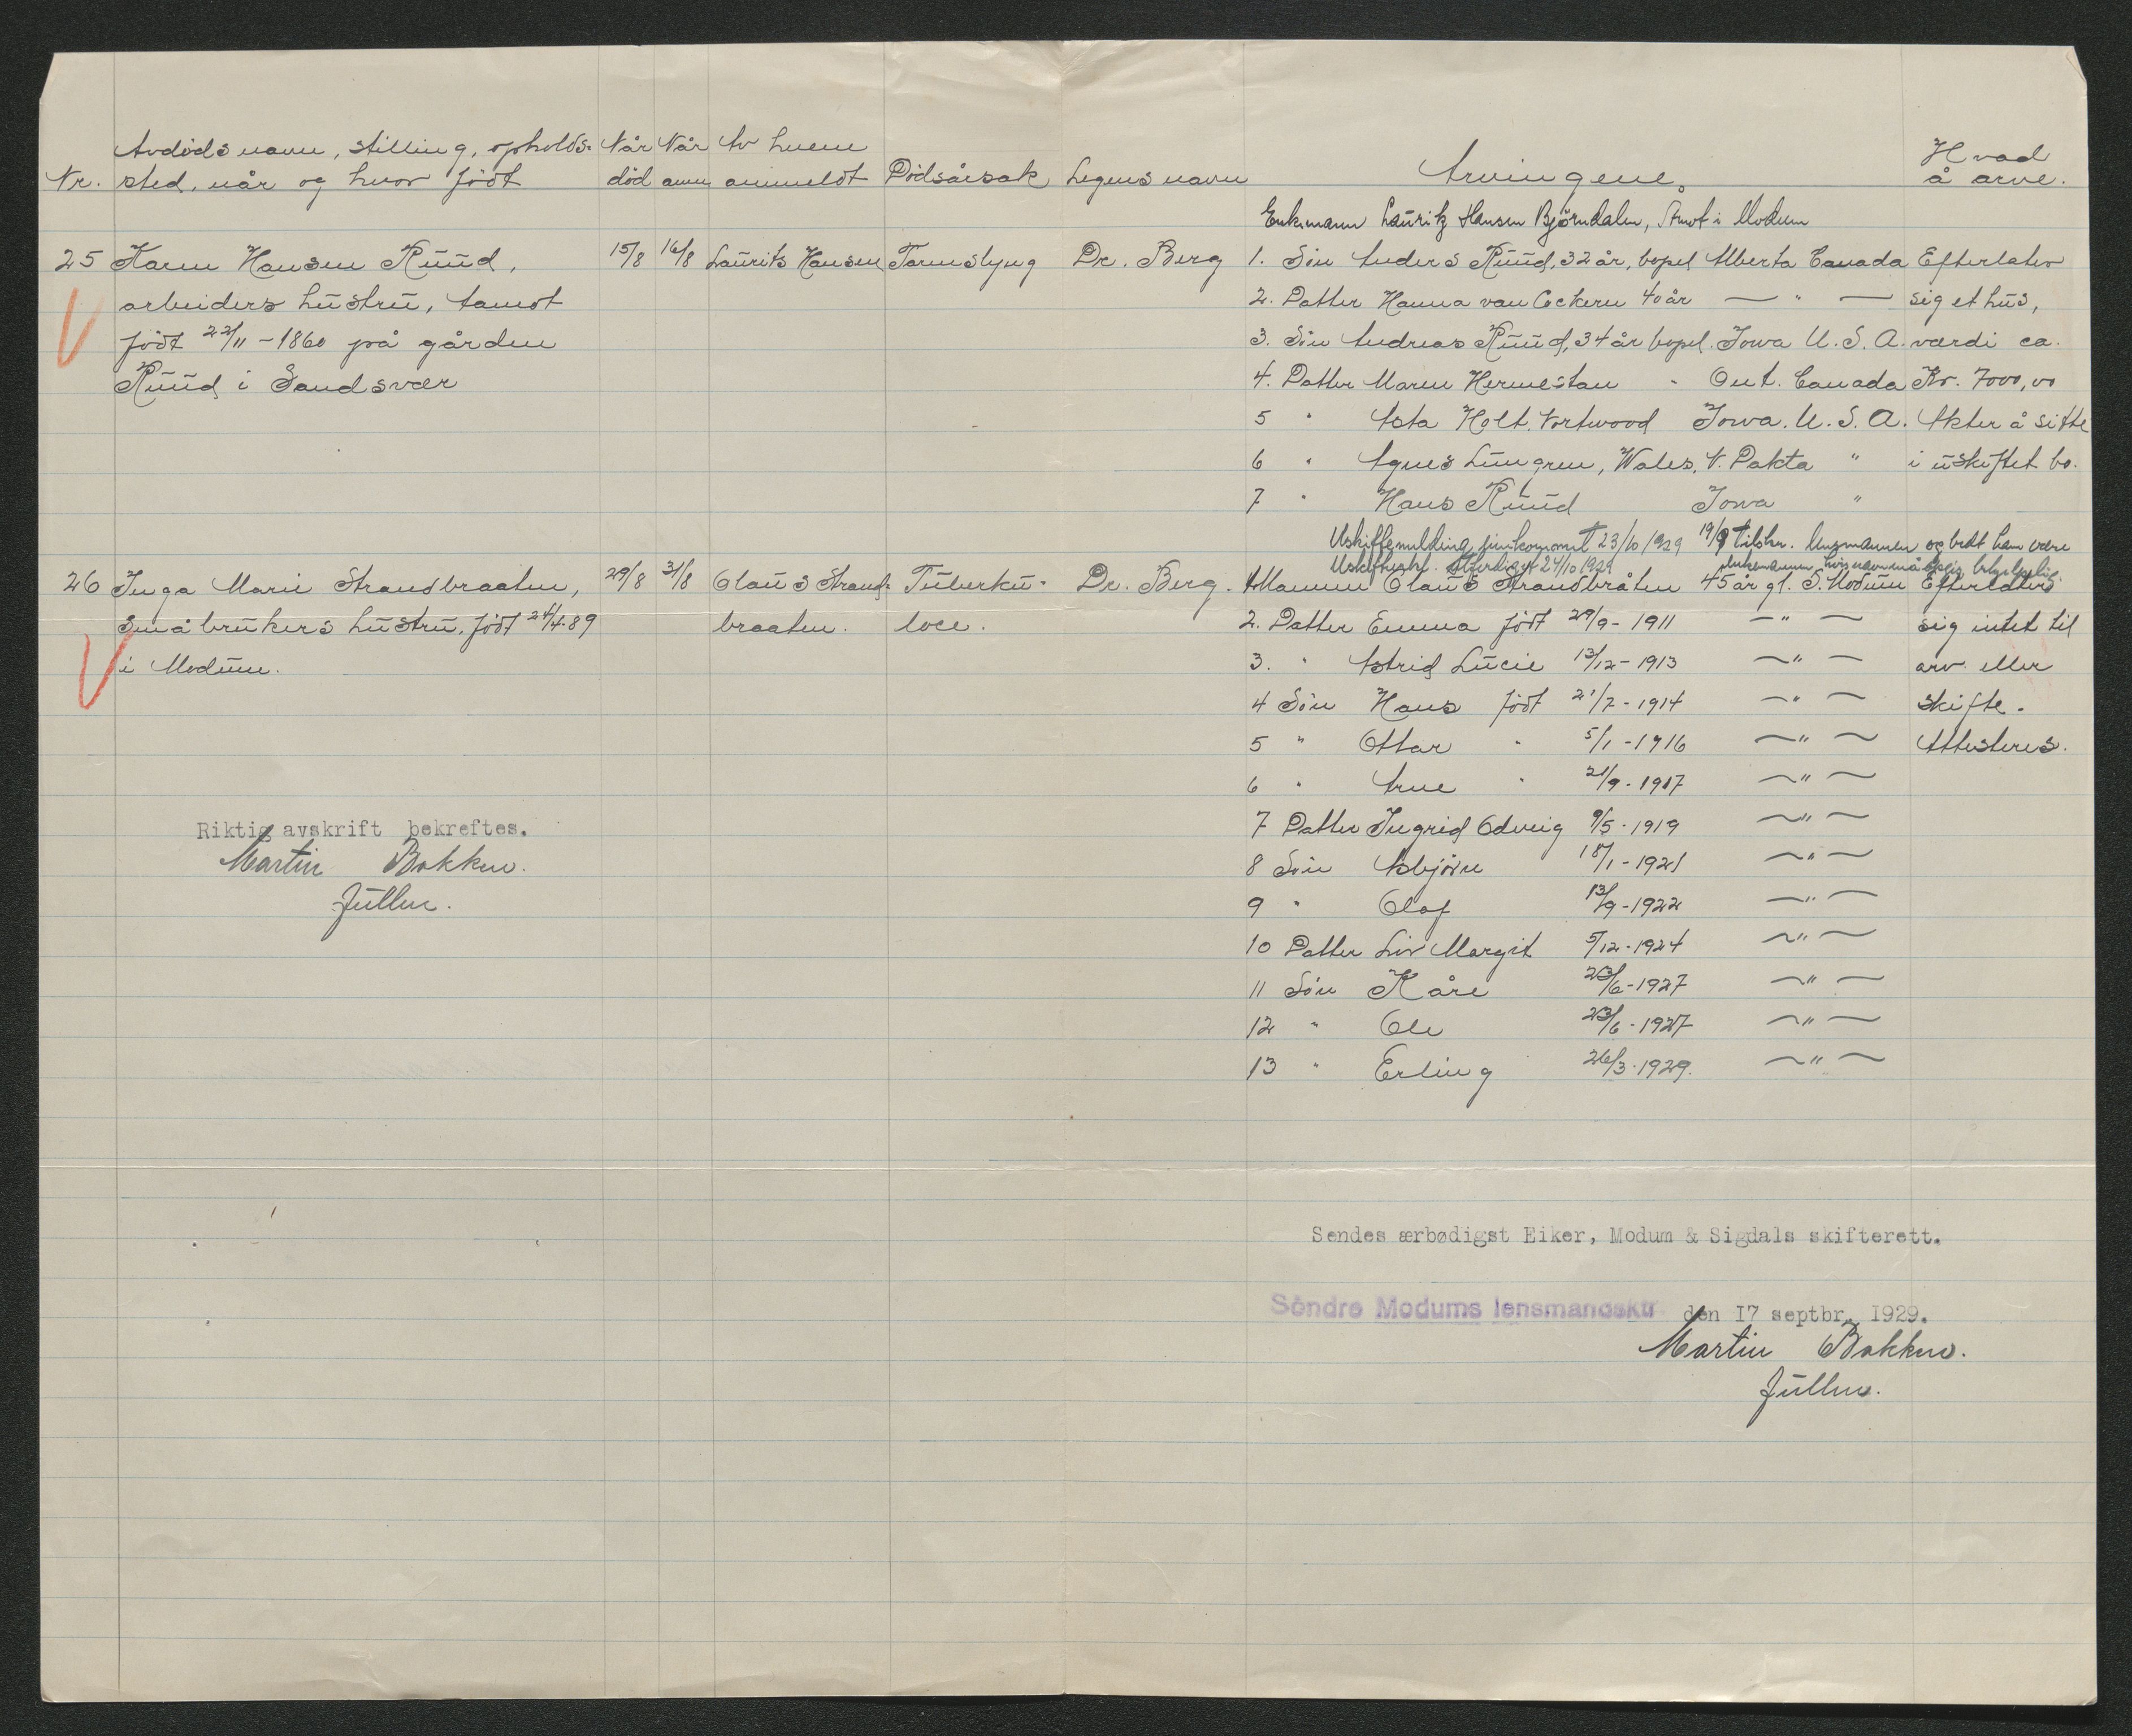 Avdöds navn, stilling, opholds- Når Når Av hvem Hvad
Nr. sted, når og hvor född död anm anmeldt Dödsårsak Legens navn Arvingene. å arve.
Enkemann Lauritz Hansen Björndalen, Åmot i Modum
25 Karen Hansen Ruud, 15/8 16/8 Laurits Hansen Tarmslyng Dr. Berg 1. Sön Anders Ruud, 32 år, bopel Alberta Canada Efterlater
arbeiders hustru, Aamot 2. Datter Hanna van Cockern 40 år — " — sig et hus,
född 22/11 - 1860 på gården 3. Sön Andreas Ruud, 34 år bopel. Iowa U.S.A. værdi ca.
Ruud i Sandsvær 4. Datter Maren Hermestan - Ont. Canada Kr. 7000,00
5 " Asta Holt. Nortwood Iowa. U.S.A. Akter å sitte
6 " Agnes Lungren, Wales, N. Dakta " i uskiftet bo.
7 " Hans Ruud Iowa "
Uskiftemelding innkommet 23/10 1929 19/9 tilskr. lensmannen og bedt ham være
Uskifteatt. 24/10 1929 enkemannen
26 Inga Marie Strandbraaten, 29/8 31/8 Olaus Strand- Tuberku- Dr. Berg. 1. Mannen Olaus Strandbråten 45 år gl. S. Modum Efterlater
småbrukers hustru. född 24/4-89 braaten. lose. 2. Datter Emma född 29/9 - 1911 — " — sig intet til
i Modum. 3. " Astrid Lucie 13/12 - 1913 — " — arv eller
4 Sön Hans född 21/7 - 1914 — " — skifte.
5 " Ottar " 5/1 - 1916 — " — Attesteres.
6 " Arne " 21/9 - 1917 — " —
7 Datter Ingrid Edveig 9/5 - 1919 — " —
8 Sön Asbjörn 18/1 - 1921 — " —
9 " Olaf 13/9 - 1922 — " —
10 Datter Liv Margit 5/12 - 1924 — " —
11 Sön Kåre 23/6 - 1927 — " —
12 " Ole 23/6 - 1927 — " —
13 " Erling 26/3 - 1929. — " —
Riktig avskrift bekreftes.
Martin Bakken.
fullm.
Sendes ærbødigst Eiker, Modum & Sigdals skifterett.
Söndre Modums lensmandsktr den 17 septbr. 1929.
Martin Bakken.
fullm.